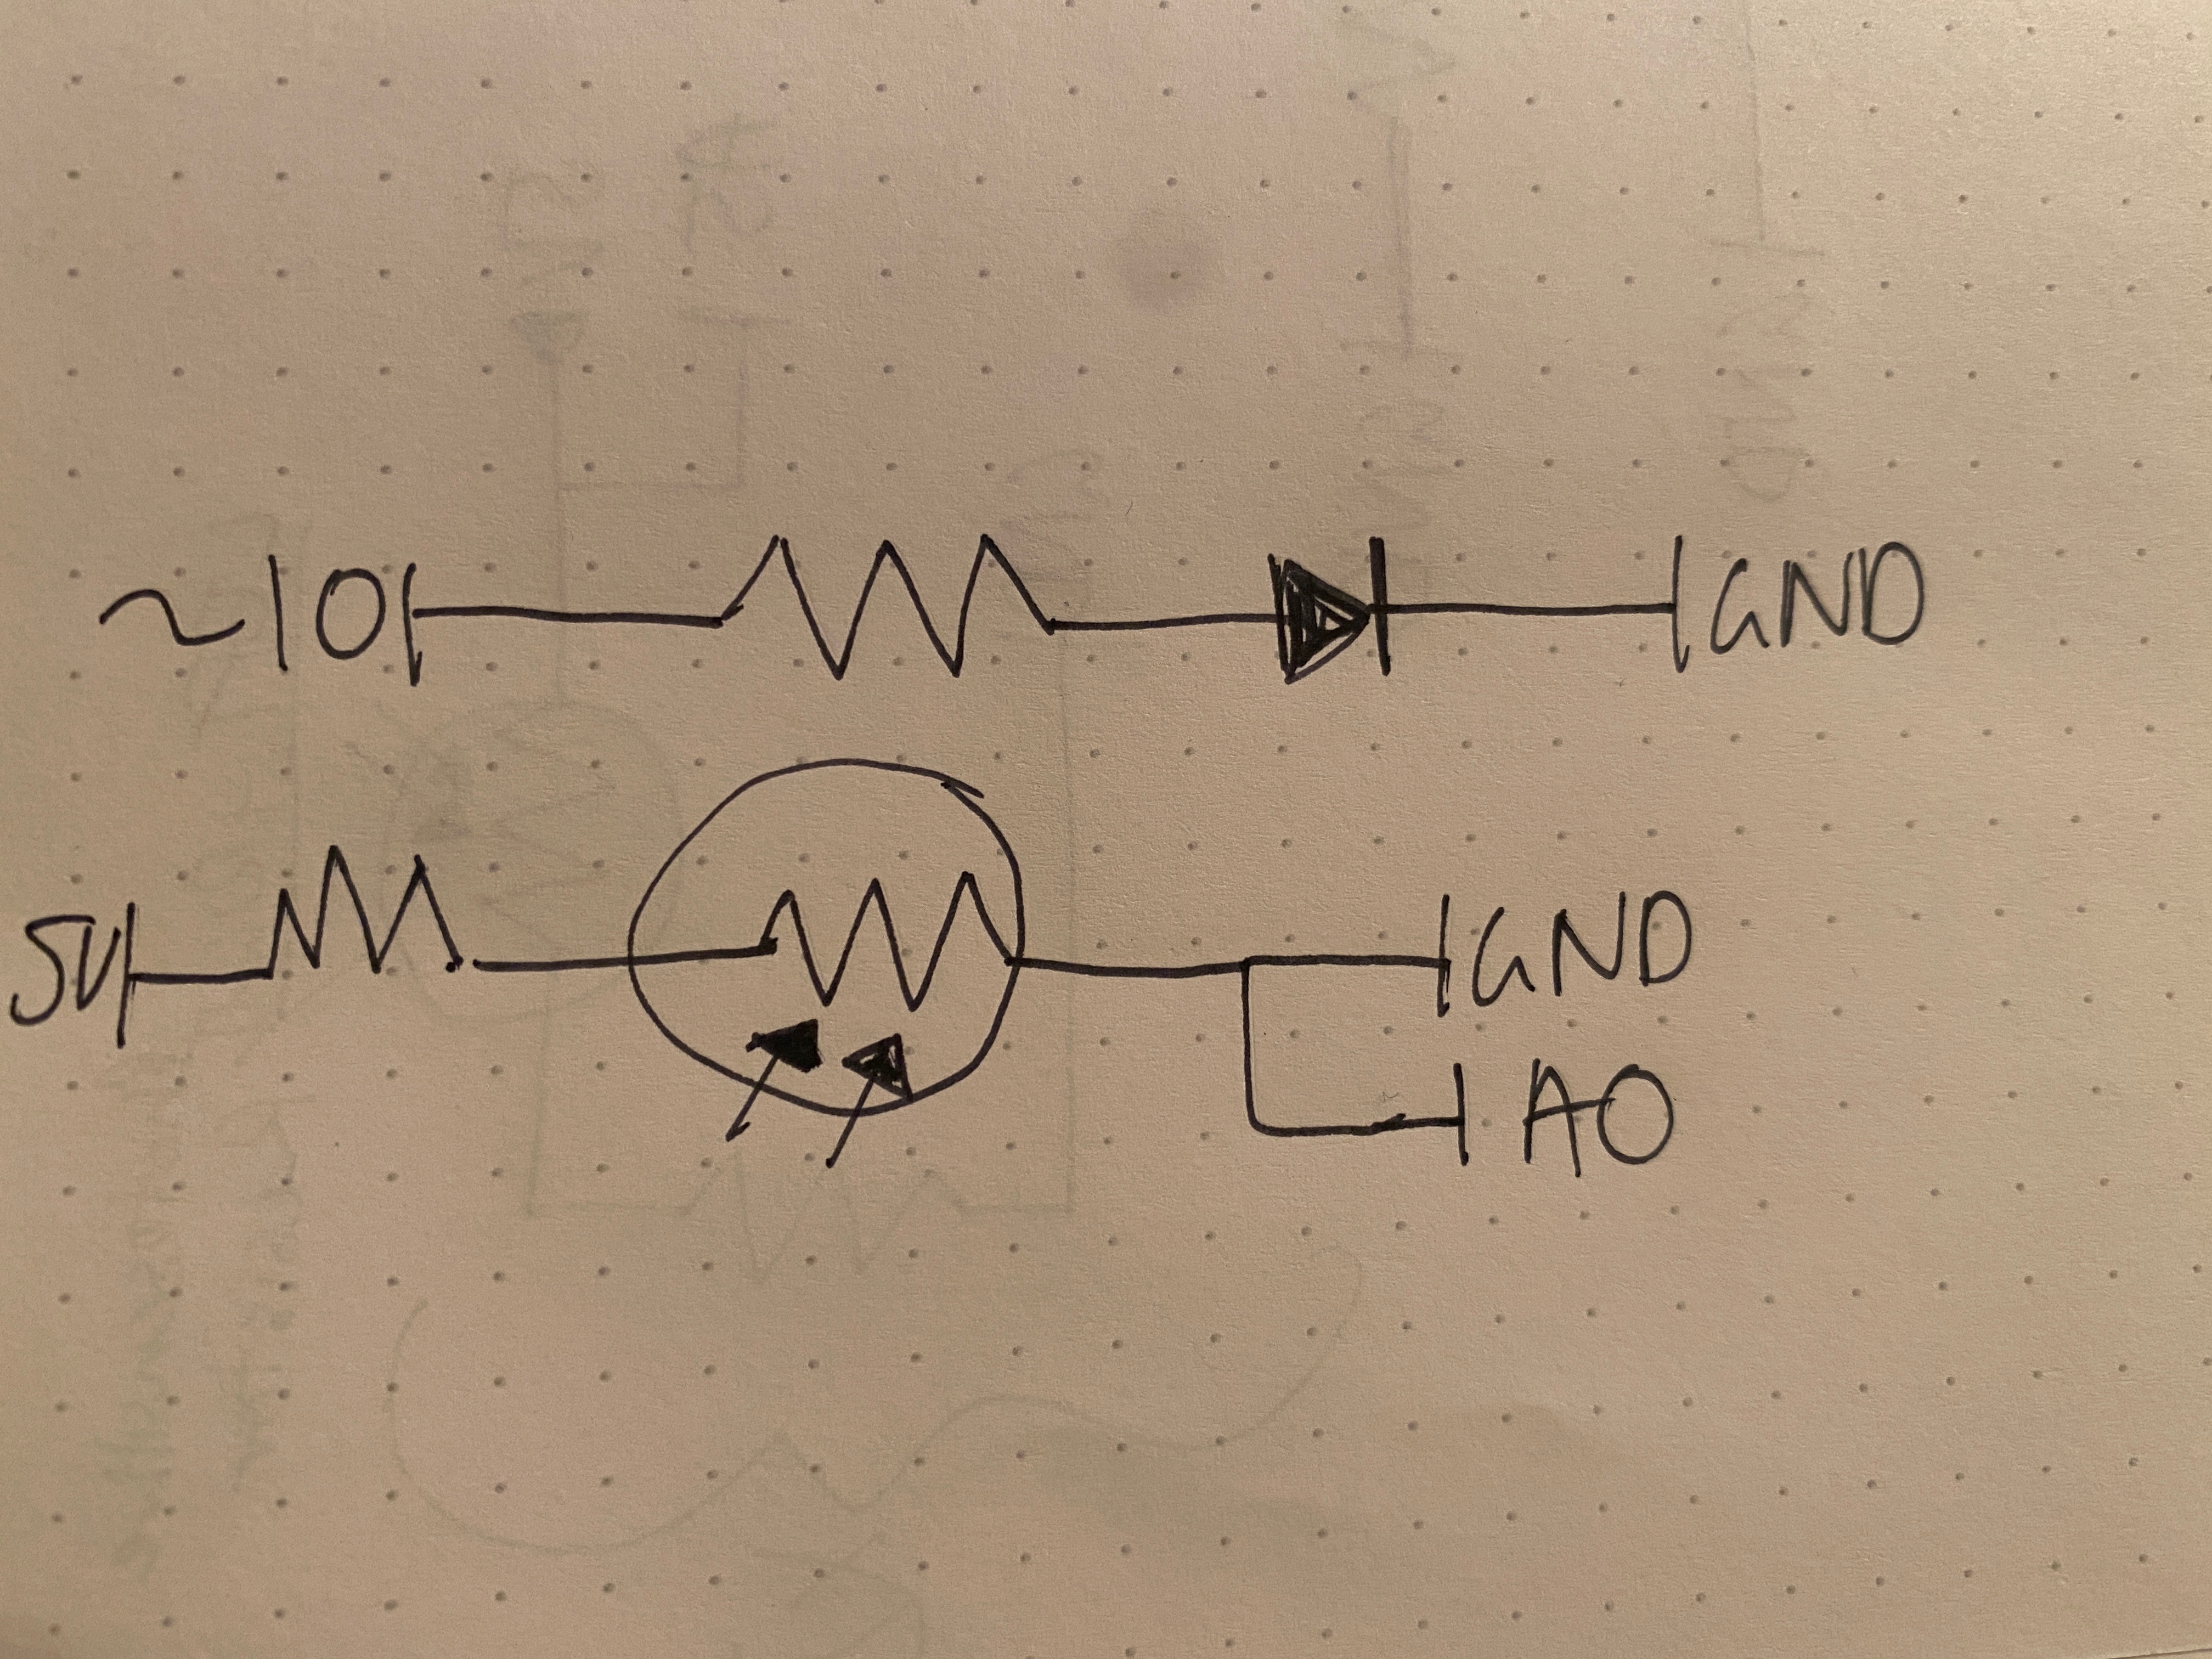 ~10 GND
5V GND
A0